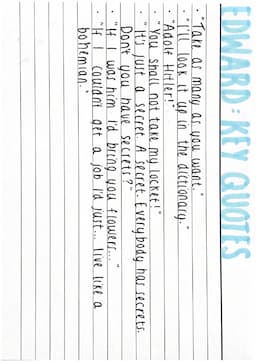 EDWARD: KEY QUOTES
• "Take as many as you want."
• "I'll look it up in the dictionary."
• "Adolf Hitler!"
• "You shall not take my locket!"
• "It's just a secret. A secret. Everybody has secrets.
Don't you have secrets?"
• "If it was him I'd bring you flowers..."
• "If I couldn't get a job I'd just... live like a
bohemian."